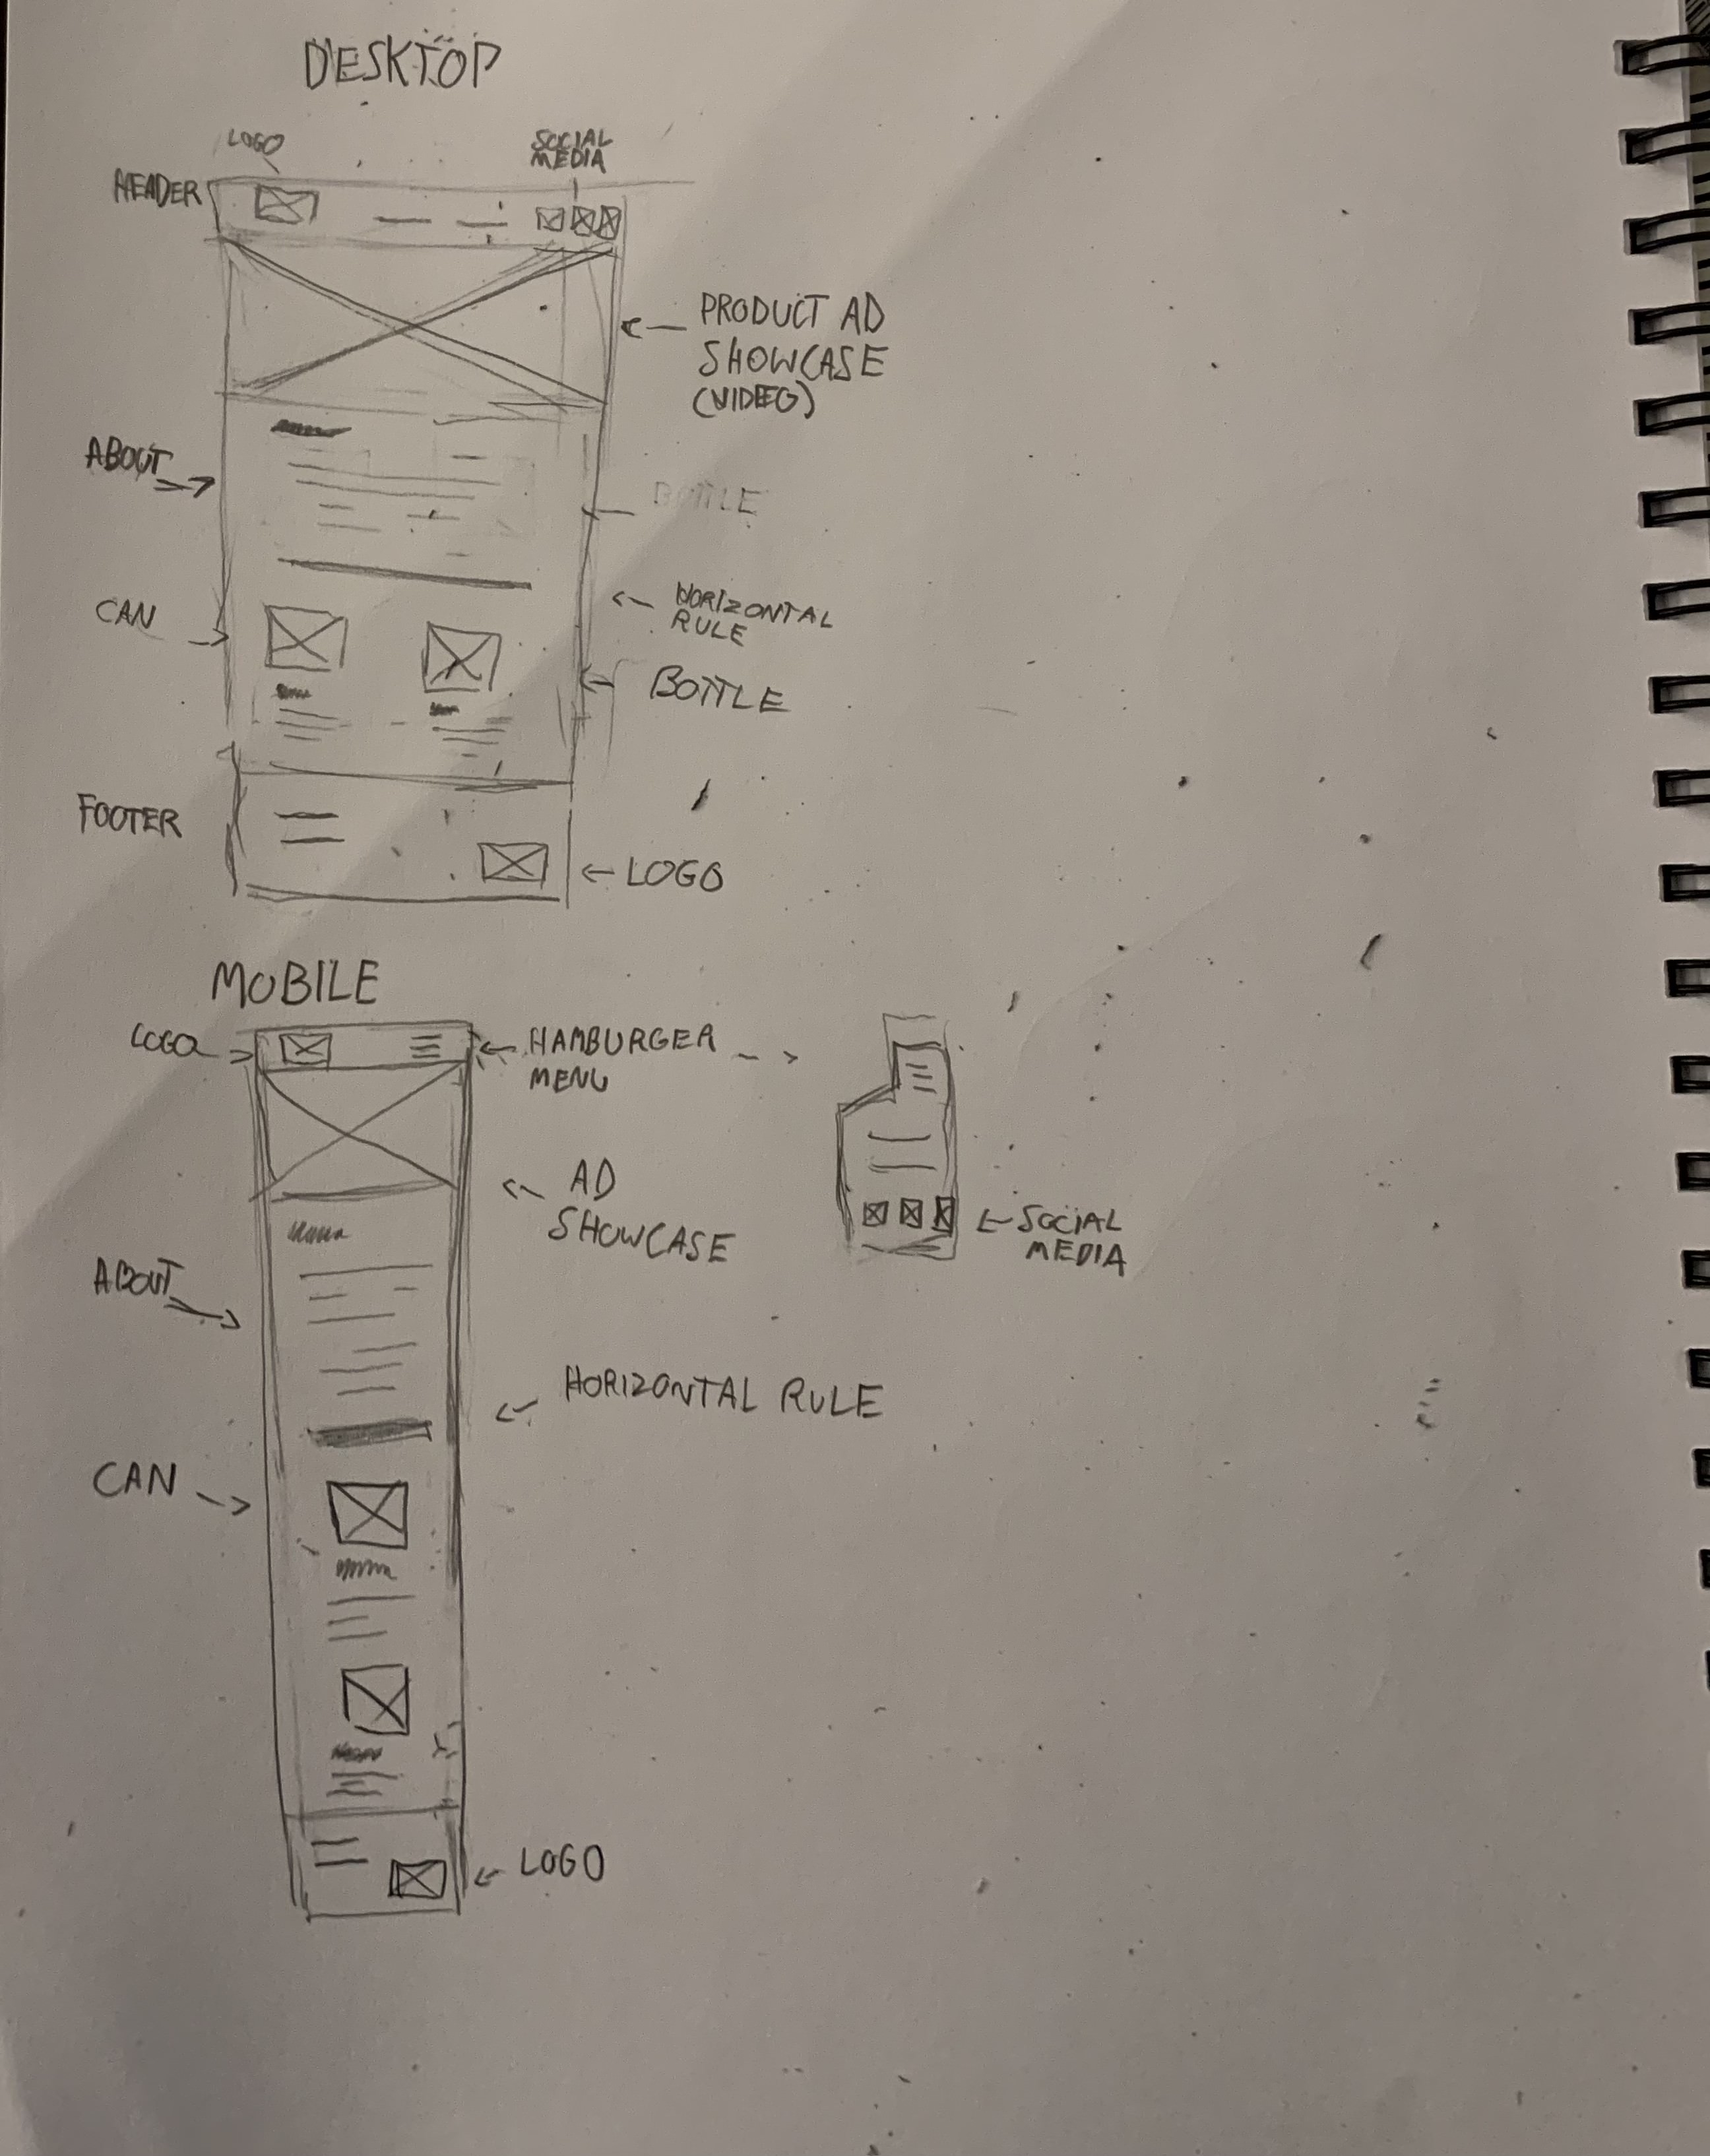 DESKTOP
LOGO
SOCIAL
MEDIA
HEADER
PRODUCT AD
SHOWCASE
(VIDEO)
ABOUT
BOTTLE
HORIZONTAL
RULE
CAN
BOTTLE
FOOTER
LOGO
MOBILE
LOGO
HAMBURGER
MENU
AD
SHOWCASE
SOCIAL
MEDIA
ABOUT
HORIZONTAL RULE
CAN
LOGO